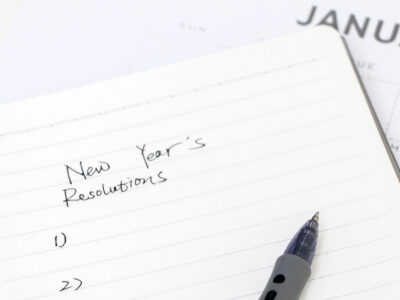 JANU
UE
New Year's
Resolutions
1)
2)